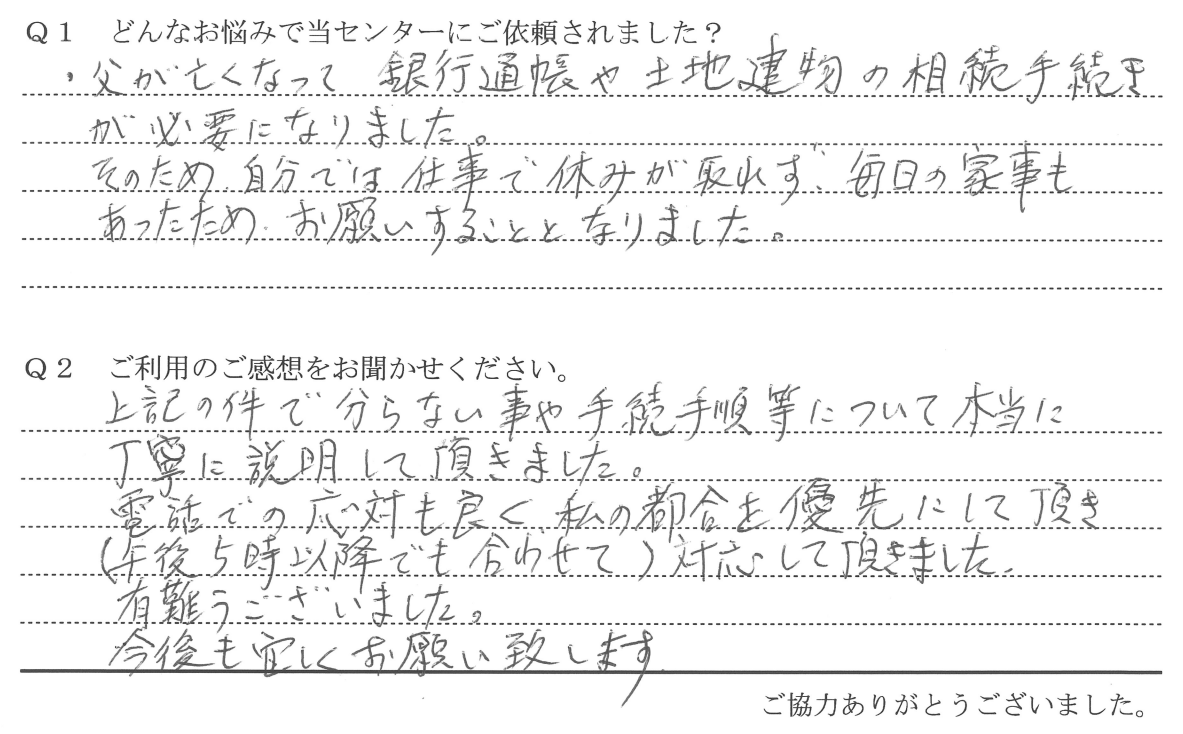 Q1 どんなお悩みで当センターにご依頼されました？
・父が亡くなって 銀行通帳や土地建物の相続手続き
が必要になりました。
そのため、自分では仕事で休みが取れず、毎日の家事も
あったため、お願いすることとなりました。
Q2 ご利用のご感想をお聞かせください。
上記の件で分らない事や手続手順等について本当に
丁寧に説明して頂きました。
電話での応対も良く、私の都合を優先にして頂き
(午後5時以降でも合わせて)対応して頂きました。
有難うございました。
今後も宜しくお願い致します
ご協力ありがとうございました。